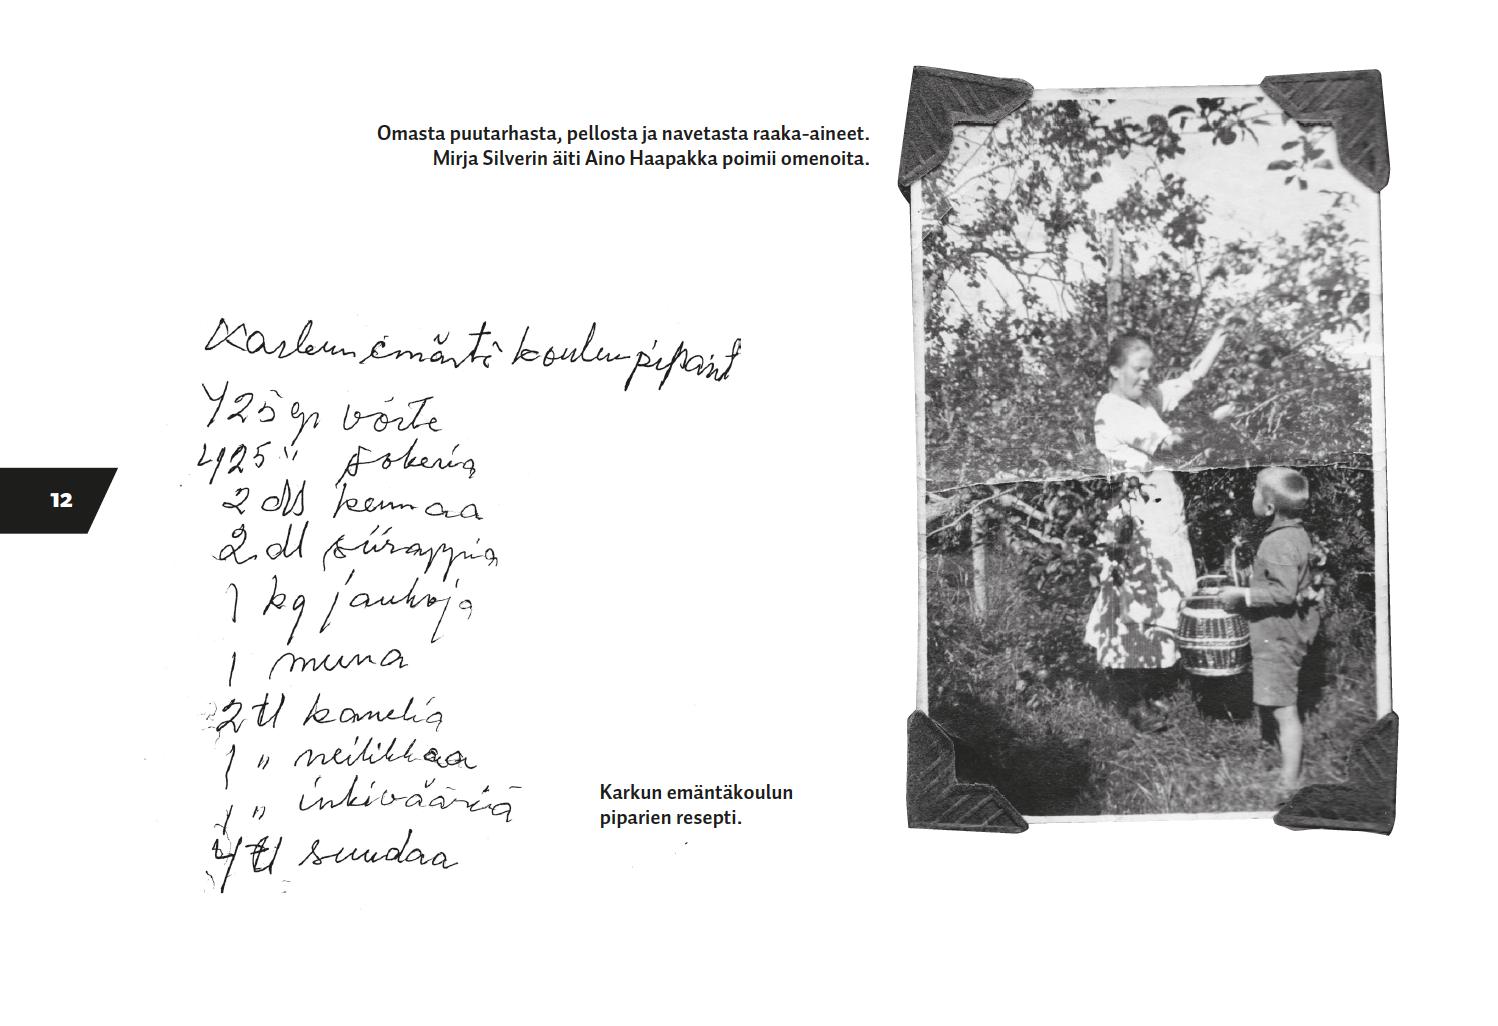 Omasta puutarhasta, pellosta ja navetasta raaka-aineet.
Mirja Silverin äiti Aino Haapakka poimii omenoita.
Karkun emäntä koulun piparit
425 gr vöite
425 " sokeria
2 dl kermaa
2 dl siirappia
1 kg jauhoja
1 muna
2 tl kanelia
1 " neilikkaa
1 " inkivääriä
4 tl suudaa
Karkun emäntäkoulun
piparien resepti.
12